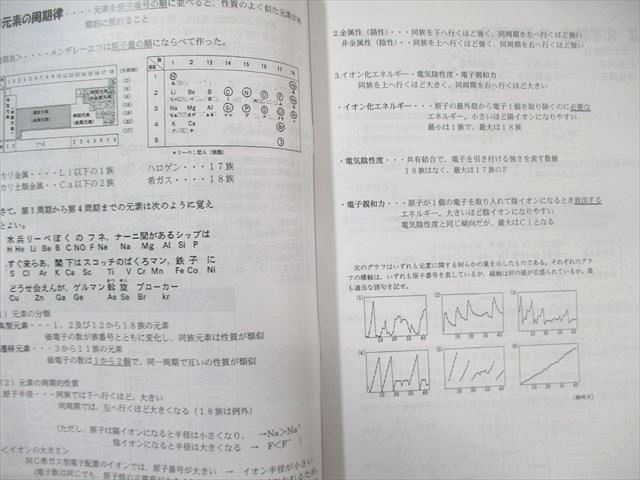 元素の周期律・・・・元素を原子番号の順に並べると、性質のよく似た元素が周
期的に現れること
期表＞・・・・メンデレーエフは原子量の順にならべて作った。
1 2 13 14 15 16 17 18
H
Li Be B C N O F Ne
Na Mg Al Si P S Cl Ar
K Ca
＊リーベ：恋人（独語）
カリ金属・・・Li以下の1族
ハロゲン・・・17族
カリ土類金属・・Ca以下の2族
希ガス・・・・18族
さて、第1周期から第4周期までの元素は次のように覚え
とよい。
水兵リーベぼくのフネ、ナーニ間があるシップは
H He Li Be B C NO F Ne Na Mg Al Si P
すぐ来らあ、閣下はスコッチのばくろマン、鉄子に
S Cl Ar K Ca Sc Ti V Cr Mn Fe Co Ni
どうせ会えんが、ゲルマン斡旋ブローカー
Cu Zn Ga Ge As Se Br kr
1）元素の分類
典型元素・・・1、2及び12から18族の元素
価電子の数が族番号とともに変化し、同族元素は性質が類似
遷移元素・・・3から11族の元素
価電子の数は1から2個で、同一周期で互いの性質が類似
（2）元素の周期的性質
原子半径・・・同族では下へ行くほど、大きい
同周期では、左へ行くほど大きくなる（18族は例外）
（ただし、原子は陽イオンになると半径は小さくなり、 →Na＞Na⁺
陰イオンになると半径は大きくなる → F＜F⁻ ）
＜イオンの大きさ＞
同じ希ガス型電子配置のイオンでは、原子番号が大きい → イオン半径が小さい
2.金属性（陽性）・・・同族を下へ行くほど強く、同周期を左へ行くほど強い
非金属性（陰性）・・同族を上へ行くほど強く、同周期を右へ行くほど強い
3.イオン化エネルギー・電気陰性度・電子親和力
同族を上へ行くほど大きく、同周期を右へ行くほど大きい
・イオン化エネルギー・・・原子の最外殻から電子1個を取り除くのに必要な
エネルギー。小さいほど陽イオンになりやすい
最小は1族で、最大は18族
・電気陰性度・・・共有結合で、電子を引き付ける強さを表す数値
18族はなく、最大は17族のF
・電子親和力・・・原子が1個の電子を取り入れて陰イオンになるとき放出する
エネルギー。大きいほど陰イオンになりやすい
電気陰性度と同じ傾向だが、最大はClとなる
次のグラフはいずれも元素に関する何らかの量を示したものである。それぞれのグラ
フの横軸は、いずれも原子番号を表しているが、縦軸は何の値が目盛られているか。最
も適当な語句を記せ。
(1) (2) (3)
10 20 30 40 10 20 30 40 10 20 30 40
(4) (5) (6)
10 20 30 40 10 20 30 40 10 20 30 40